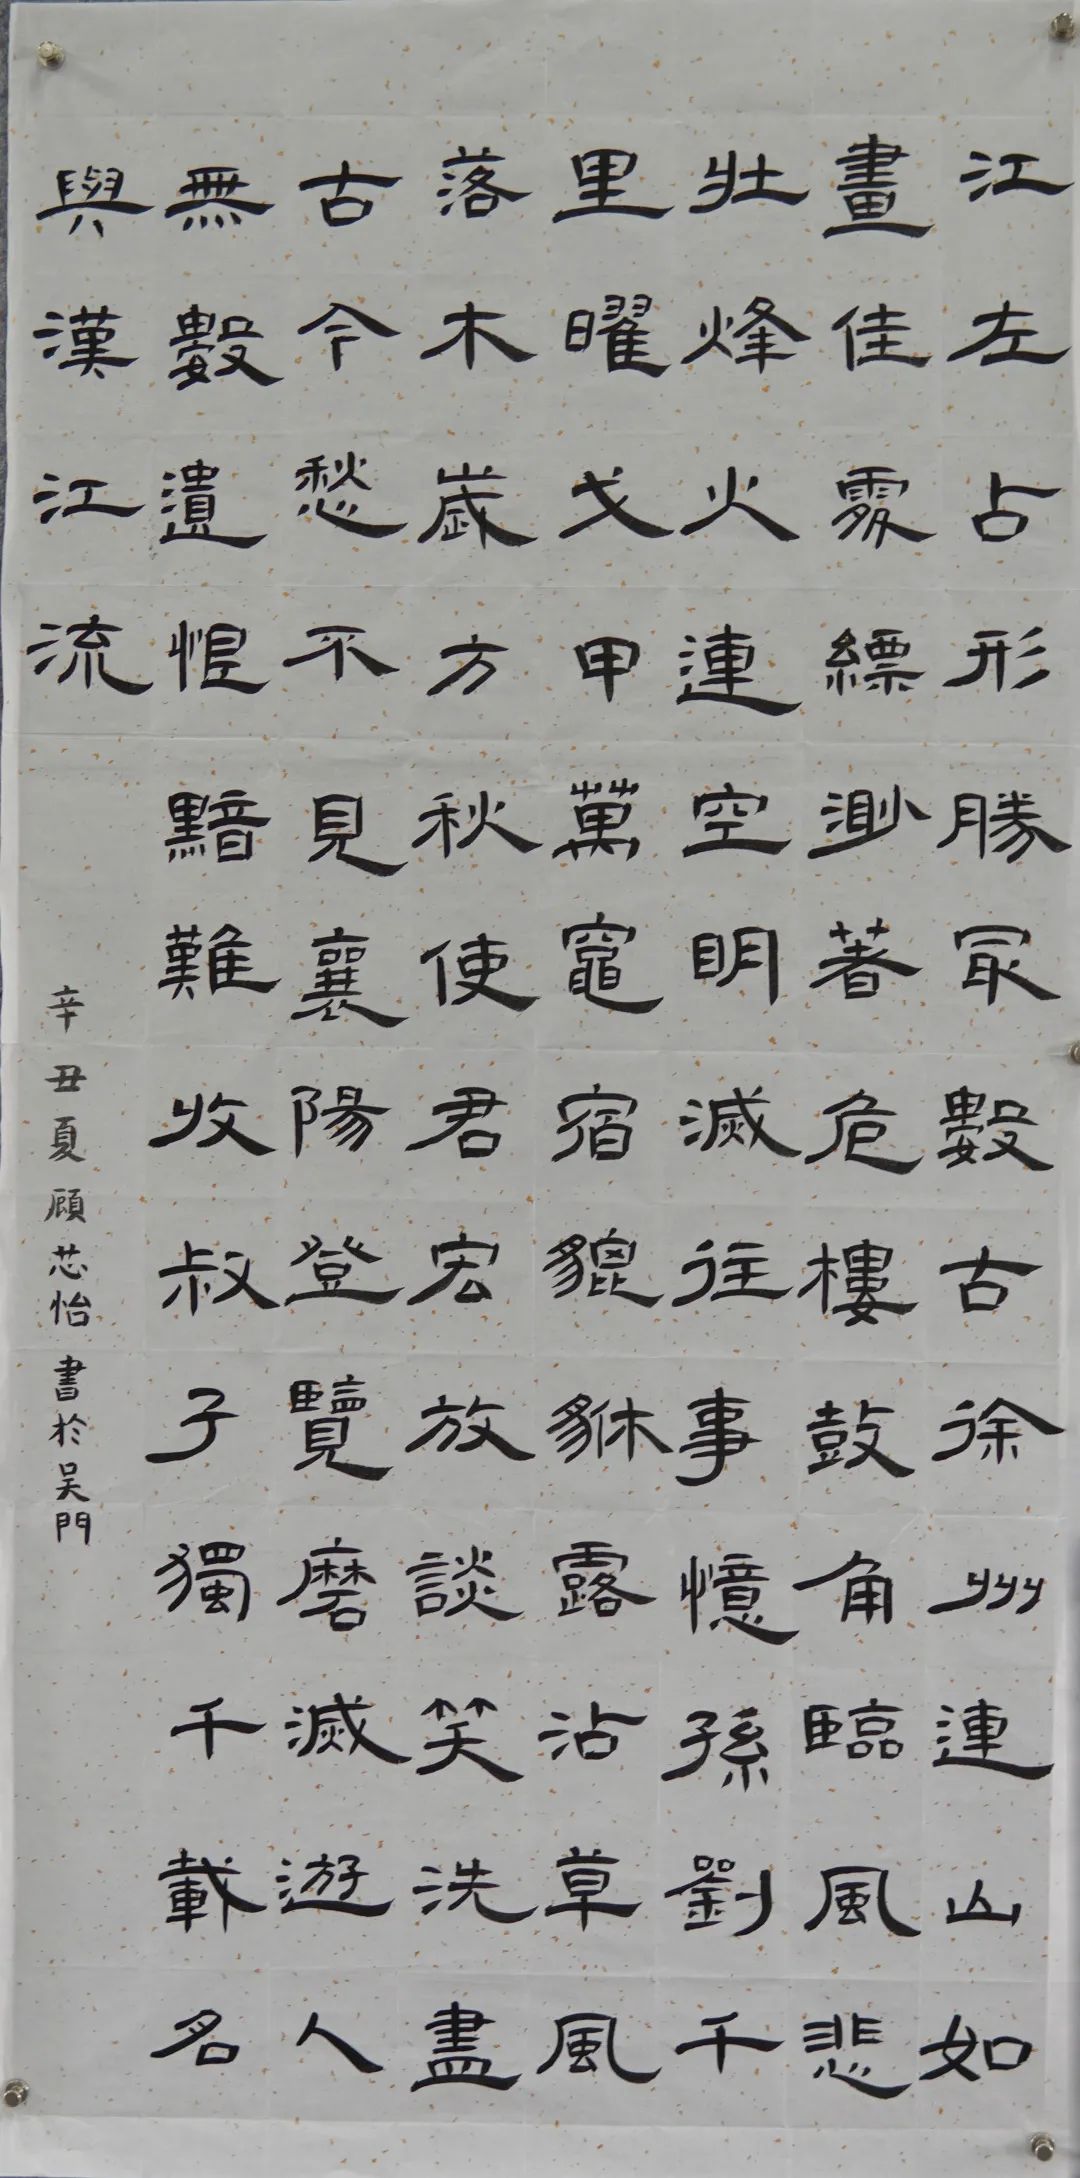 江左占形勝冣數古徐州連山如
畫佳處縹渺著危樓鼓角臨風悲
壯烽火連空明滅往事憶孫劉千
里曜戈甲萬竈宿貔貅露沾草風
落木歲方秋使君宏放談笑洗盡
古今愁不見襄陽登覽磨滅遊人
無數遺恨黯難收叔子獨千載名
與漢江流
辛丑夏顾芯怡書於吴門